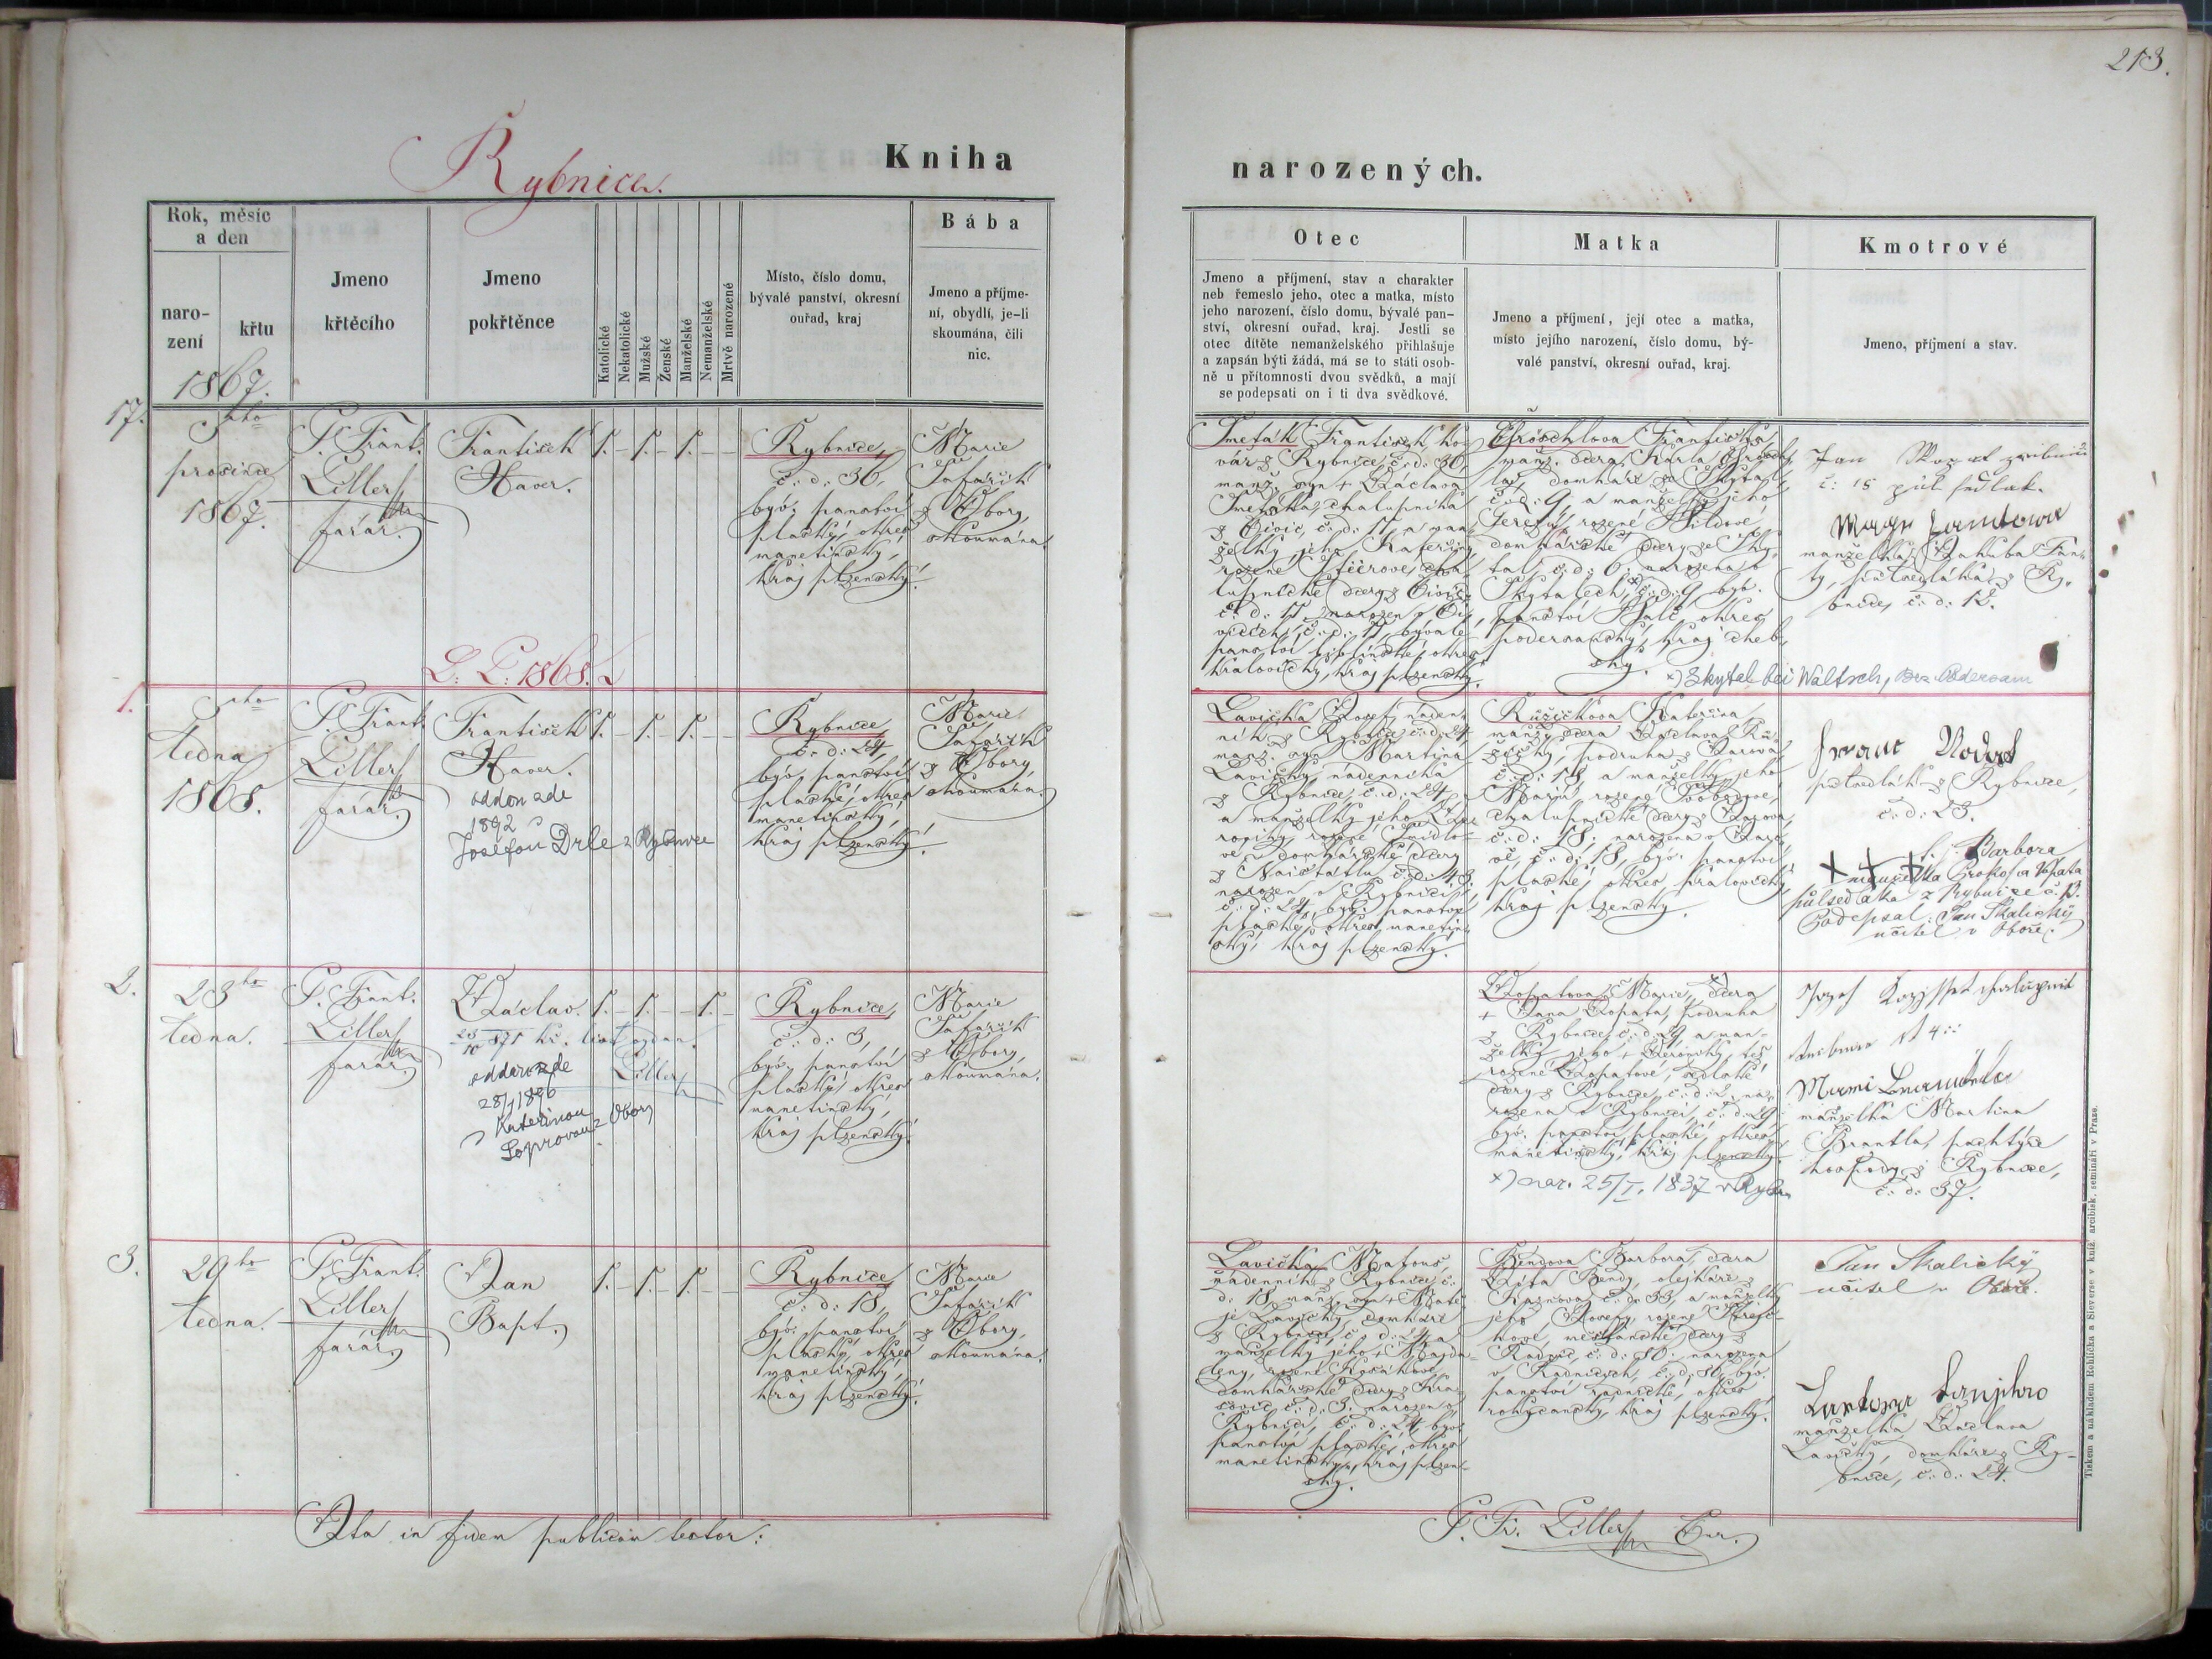 213.
Rybnice.
Kniha
narozených.
Rok, měsíc
a den
naro-
zení
křtu
Jmeno
křtěcího
Jmeno
pokřtěnce
Katolické
Nekatolické
Mužské
Ženské
Manželské
Nemanželské
Mrtvě narozené
Místo, číslo domu,
bývalé panství, okresní
ouřad, kraj
Bába
Jmeno a příjme-
ní, obydlí, je-li
skoumána, čili
nic.
Otec
Jmeno a příjmení, stav a charakter
neb řemeslo jeho, otec a matka, místo
jeho narození, číslo domu, bývalé pan-
ství, okresní ouřad, kraj. Jestli se
otec dítěte nemanželského přihlašuje
a zapsán býti žádá, má se to státi osob-
ně u přítomnosti dvou svědků, a mají
se podepsati on i ti dva svědkové.
Matka
Jmeno a příjmení, její otec a matka,
místo jejího narození, číslo domu, bý-
valé panství, okresní ouřad, kraj.
Kmotrové
Jmeno, příjmení a stav.
1867.
17.
5ho
prosince
1867.
P. Frant.
Liller
farář.
František
Xaver.
1. – 1. – 1. – –
Rybnice,
č: d: 36,
býv. panství
plaský, okres
manetínský,
kraj plzenský.
Marie
Šafařík
z Obory,
skoumána.
Smeták František, ko-
vář z Rybnice č: d: 36,
manž. syn + Václava
Smetáka, chalupníka
z Čivic, č: d: 17, a man-
želky jeho Kateřiny,
rozené
lupnické dcery z Čivic
č: d: 17, narozen v Či-
vicích, č: d: 17, bývalé
panství okres
kralovický, kraj plzenský.
Františka,
manž. dcera Karla
domkáře ze Skytal
č: d: 9, a manželky jeho
Terezy, rozené
domkářské dcery ze Sky-
tal č: d: 6, narozena v
Skytalech, x) č: d: 9, býv.
panství Valč, okres
podersamský, kraj cheb-
ský.
x) Skytal bei Waltsch, Bez. Podersam
Jan
č: 15 půl sedlák.
manželka Jakuba Jan-
ty, půlsedláka z Ry-
bnice, č: d: 12.
L. P. 1868.
1.
5ho
ledna
1868.
P. Frant.
Liller
farář.
František
Xaver.
oddán zde
1892
Josefou Drle z Rybnice
1. – 1. – 1. – –
Rybnice
č: d: 24,
býv. panství
plaské, okres
manetínský,
kraj plzenský.
Marie
Šafařík
z Obory,
skoumána.
Lavička Josef, náden-
ník z Rybnice č: d: 24
manž. syn Martina
Lavičky, nádenníka
z Rybnice, č: d: 24,
a manželky jeho
roziny, rozené
vé, domkářské dcery
č: d: 43.
narozen v Rybnici,
č: d: 24, býv. panství
plaské, okres manetín-
ský, kraj plzenský.
Růžičkova Kateřina
manž. dcera Václava Rů-
žičky, podruha z
č: d: 18, a manželky jeho
Marie, rozené Svobodové,
chalupnické dcery z
č: d: 18, narozena v
č: d: 18, býv. panství
plaské, okres kralovický,
kraj plzenský.
Franc
půlsedlák z Rybnice,
č: d: 23.
+ + + Barbora
manželka Prokopa Vopata
půlsedláka z Rybnice č. 13.
Podepsal: Jan Skalický
učitel v Oboře.
2.
23ho
ledna.
P. Frant.
Liller
farář.
Václav.
kř. list vydán.
Liller
oddán zde
28/1 1896
Kateřinou
z Obory
1. – 1. – – 1. –
Rybnice,
č: d: 3,
býv. panství
plaský, okres
manetínský,
kraj plzenský.
Marie
Šafařík
z Obory,
skoumána.
Vopatova Marie, x) dcera
+ Jana Vopata, podruha
z Rybnice č: d: 29, a man-
želky jeho + Veroniky, též
rozené Vopatové, sedlské
dcery z Rybnice, č: d: 2, na-
rozena v Rybnici, č: d: 29,
býv. panství plaské, okres
manetínský, kraj plzenský.
x) nar. 25/I. 1837 v Rybn.
Jozef chalupník
manželka Martina
Brantla, pachtýře
hospody z Rybnice,
č: d: 37.
3.
29ho
ledna.
P. Frant.
Liller
farář.
Jan
Bapt.
1. – 1. – 1. – –
Rybnice,
č: d: 18,
býv. panství
plaský, okres
manetínský,
kraj plzenský.
Marie
Šafařík
z Obory,
skoumána.
Lavička Matouš,
nádenník z Rybnice, č:
d: 18, manž. syn + Matě-
je Lavičky, domkáře
z Rybnice, č: d: 24, a
manželky jeho + Magda-
leny, rozené
domkářské dcery z Kra-
šovic č: d: 3. narozen v
Rybnici, č: d: 24, býv.
panství plaské, okres
manetínský, kraj plzen-
ský.
Bendova Barbora, dcera
Víta Bendy, olejkáře z
č: d: 33, a manželky
jeho rozené
měšťanské dcery z
Radnic, č: d: 80. narozena
v Radnicích, č: d: 80, býv.
panství radnické, okres
rokycanský, kraj plzenský.
Jan Skalický
učitel v Oboře.
manželka Václava
Lavičky, domkáře z Ry-
bnice, č: d: 24.
Ita in fidem publicam testor:
P. Fr. Liller Cur.
Tiskem a nákladem Rohlíčka a Sieverse v kníž. arcibisk. semináři v Praze.